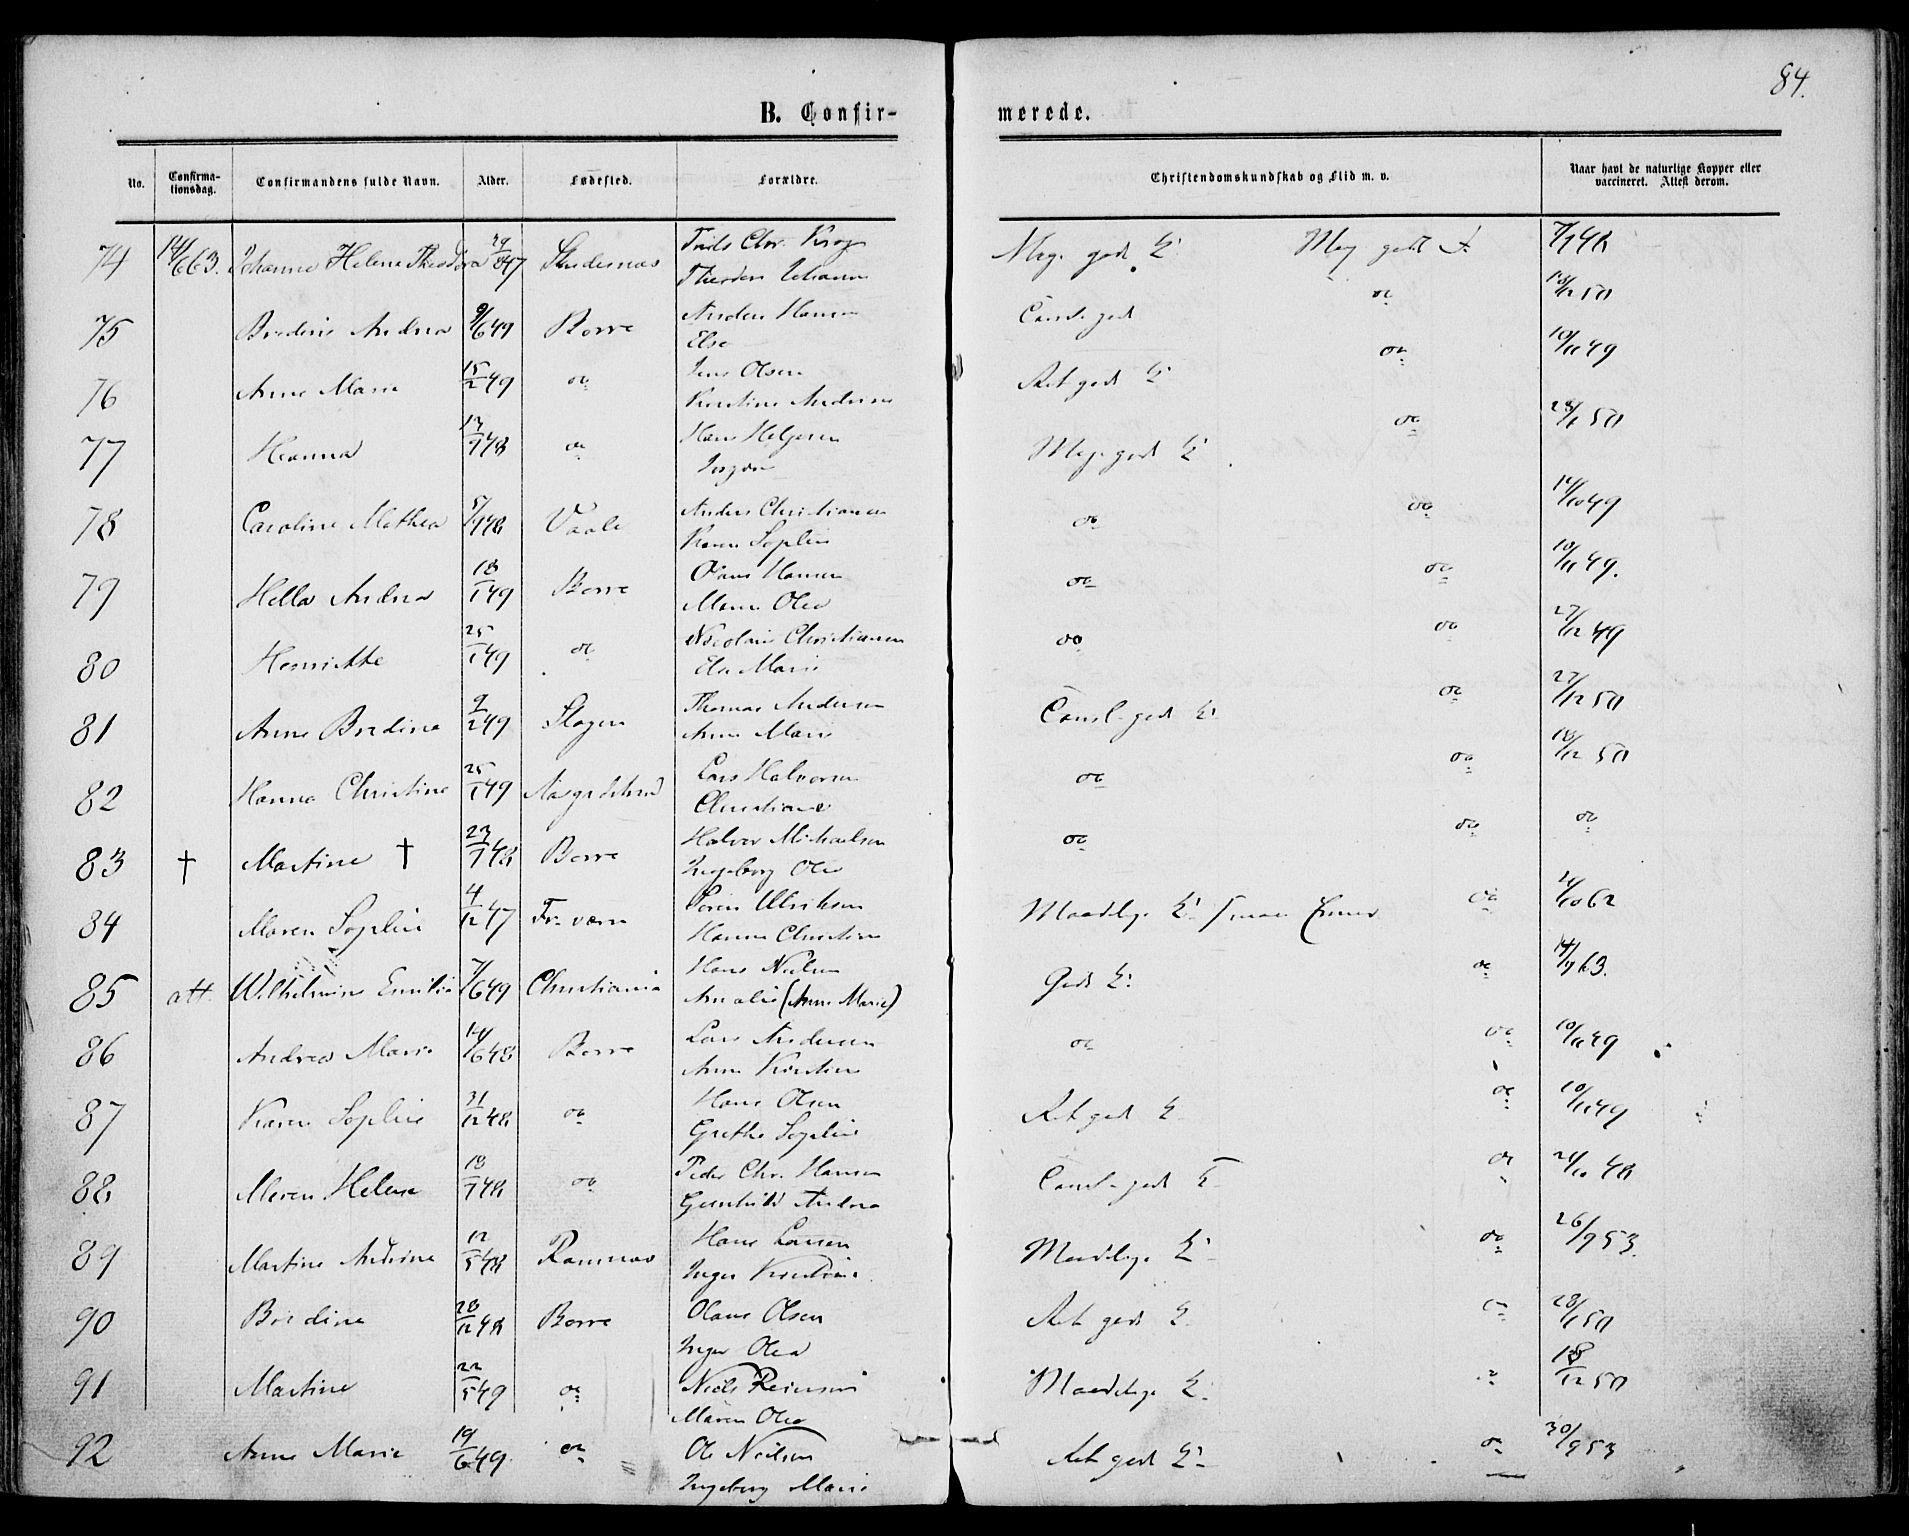 84.
B. Confir- merede.
No. Confirma- tionsdag. Confirmandens fulde Navn. Alder. Fødested. Forældre. Christendomskundskab og Flid m. v. Naar havt de naturlige Kopper eller vaccineret. Attest derom.
74 14/6 63. Johanne Helene Theodora 29/8 47 Skudesnæs Chr. Krog Meg. godt K. Meg godt F. 7/7 48
75 Andrea 9/6 49 Borre Anders Hansen do 18/12 50
Else
76 Anne Marie 15/2 49 do Jens Olsen Ret godt K. do 10/11 49
Kirstine Andersen
77 Hanna 13/9 48 do Hans Helgesen Meg. godt K. do 28/1 50
78 Caroline Mathea 5/7 48 Vaale Anders Christiansen do do 14/10 49
Karen Sophie
79 Hella Andrea 18/1 49 Borre Olaus Hansen do do 10/11 49.
Maren Olea
80 Henriette 25/1 49 do Nicolai Christiansen do do 27/12 49
Else Marie
81 Anne Bredine 9/2 49 Slagen Thomas Andersen godt K. do 27/12 50
Anne Marie
82 Hanna Christine 25/1 49 Aasgaardstrand Lars Halvorsen do do 18/12 50
Christiane
83 † Martine † 23/7 48 Borre Halvor Michaelsen do do do
Ingeborg Olea
84 Maren Sophie 4/12 47 Fr. værn Søren Ulriksen Maadelige K. do 21/10 62
Hanne Christine
85 att. Wilhelmine Emilie 7/6 49 Christiania Hans Nielsen Godt K. do 14/4 63.
Amalie (Anne Marie)
86 Andrea Marie 14/6 48 Borre Lars Andersen do do 10/11 49
Anne Kirstine
87 Karen Sophie 31/12 48 do Hans Olsen Ret godt K. do 10/11 49
Grethe Sophie
88 Maren Helene 18/7 48 do Peder Chr. Hansen godt K. do 21/10 48
Gunhild Andrea
89 Martine Andrine 12/5 48 Ramnæs Hans Larsen Maadelige K. do 26/9 53.
Inger Kirstine
90 Bredine 28/12 48 Borre Olaus Olsen Ret godt K. do 28/1 50
Inger Olea
91 Martine 22/5 49 do Niels Maadelige K. do 18/12 50
Maren Olea
92 Anne Marie 19/6 49 do Ole Nielsen Ret godt K. do 30/9 53
Ingeborg Marie